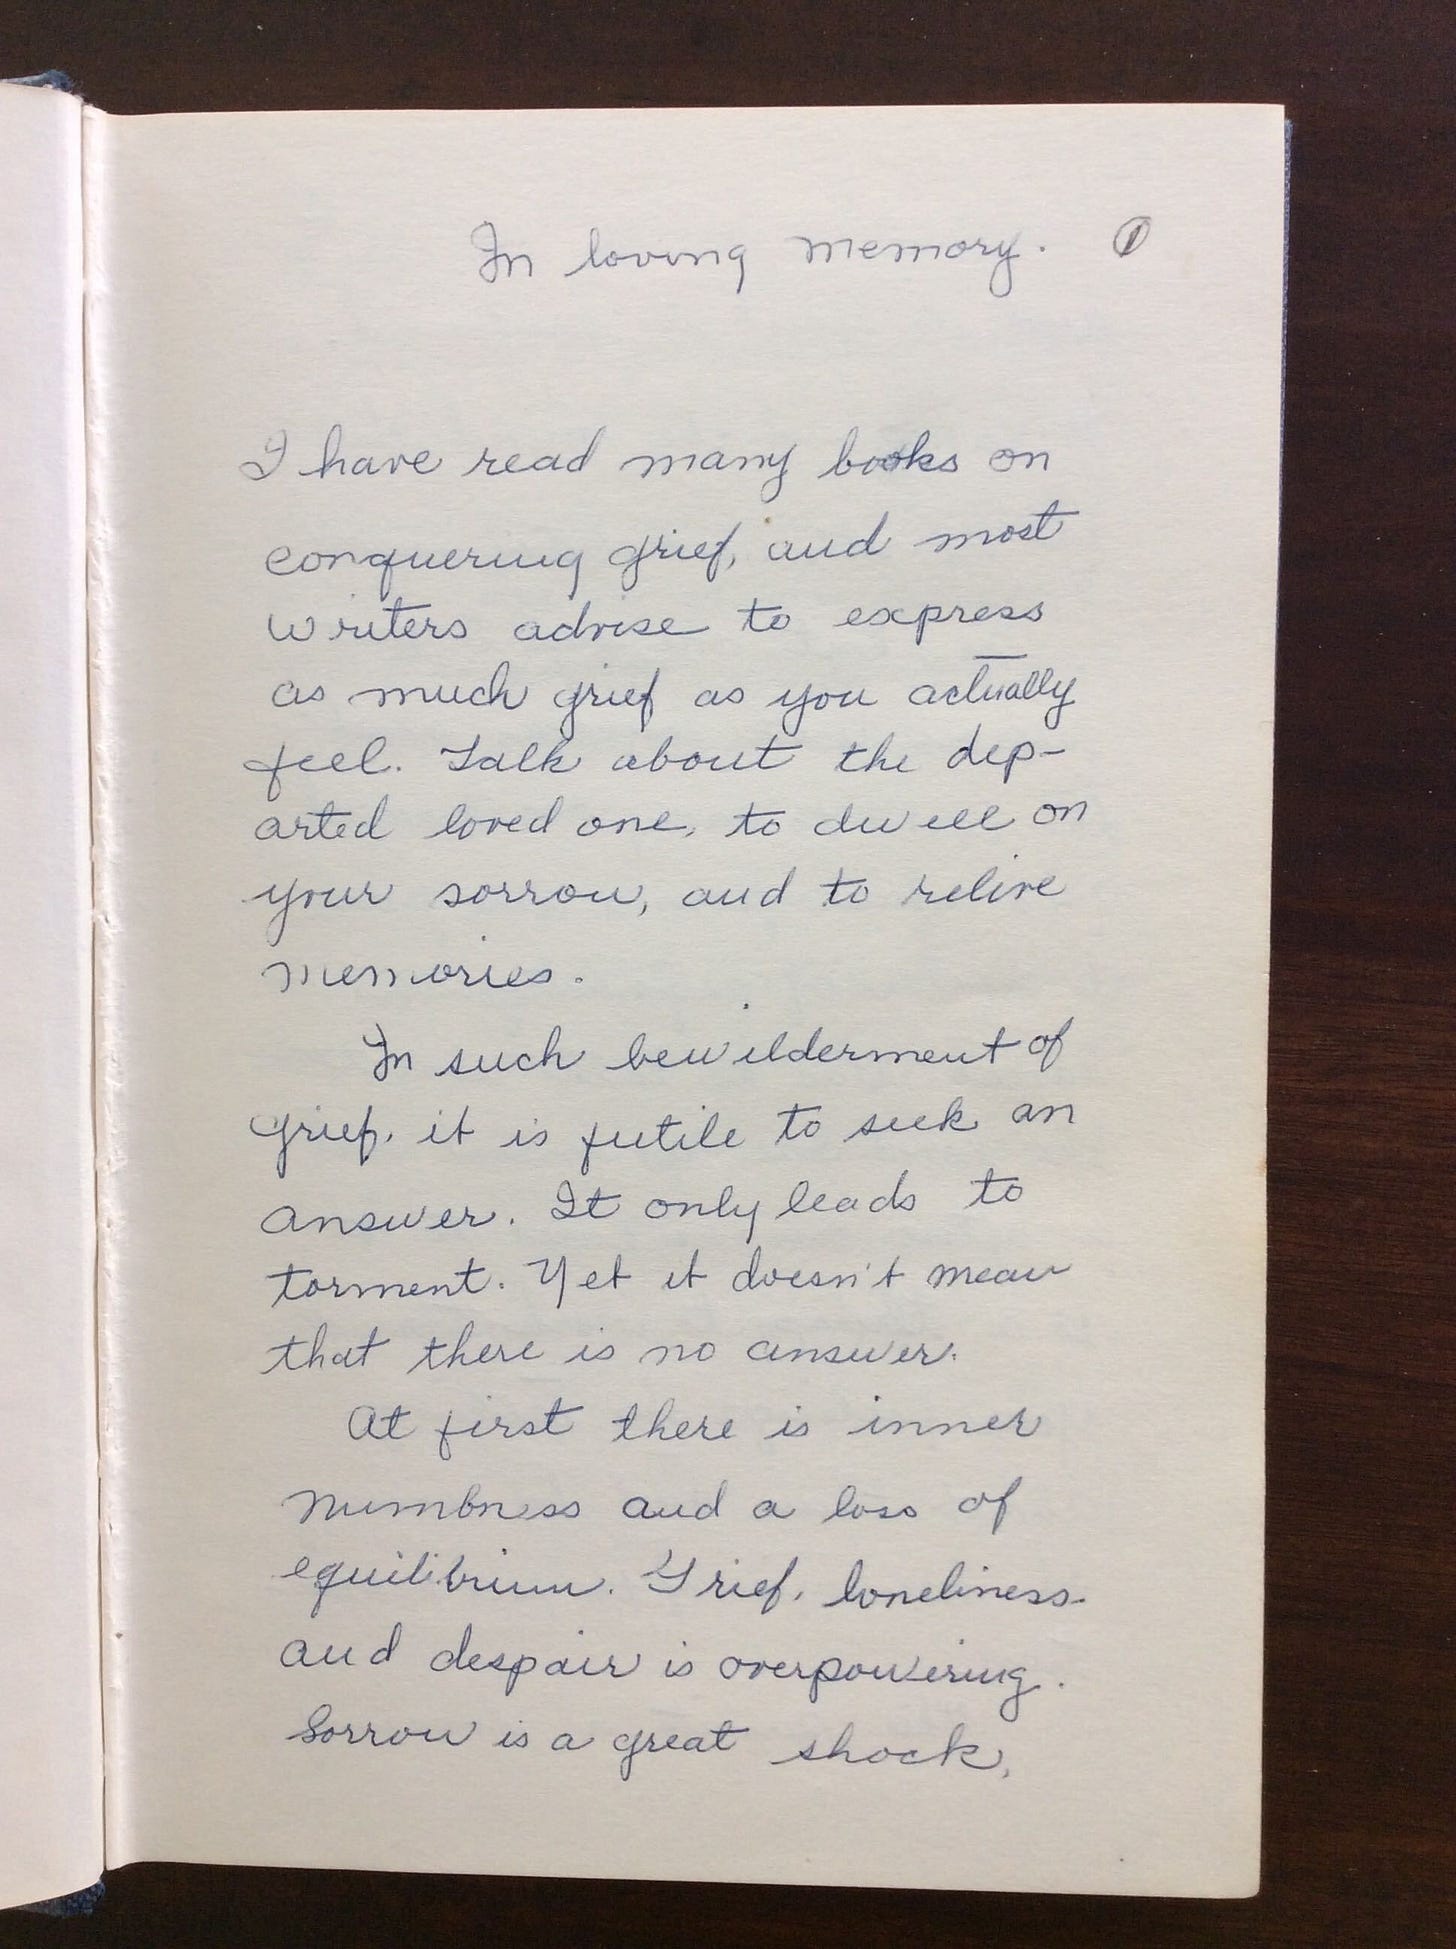 In loving memory. 1
I have read many books on
conquering grief, and most
writers advise to express
as much grief as you actually
feel. Talk about the dep-
arted loved one, to dwell on
your sorrow, and to relive
memories.
In such bewilderment of
grief, it is futile to seek an
answer. It only leads to
torment. Yet it doesn't mean
that there is no answer.
At first there is inner
numbness and a loss of
equilibrium. Grief, loneliness
and despair is overpowering.
Sorrow is a great shock,